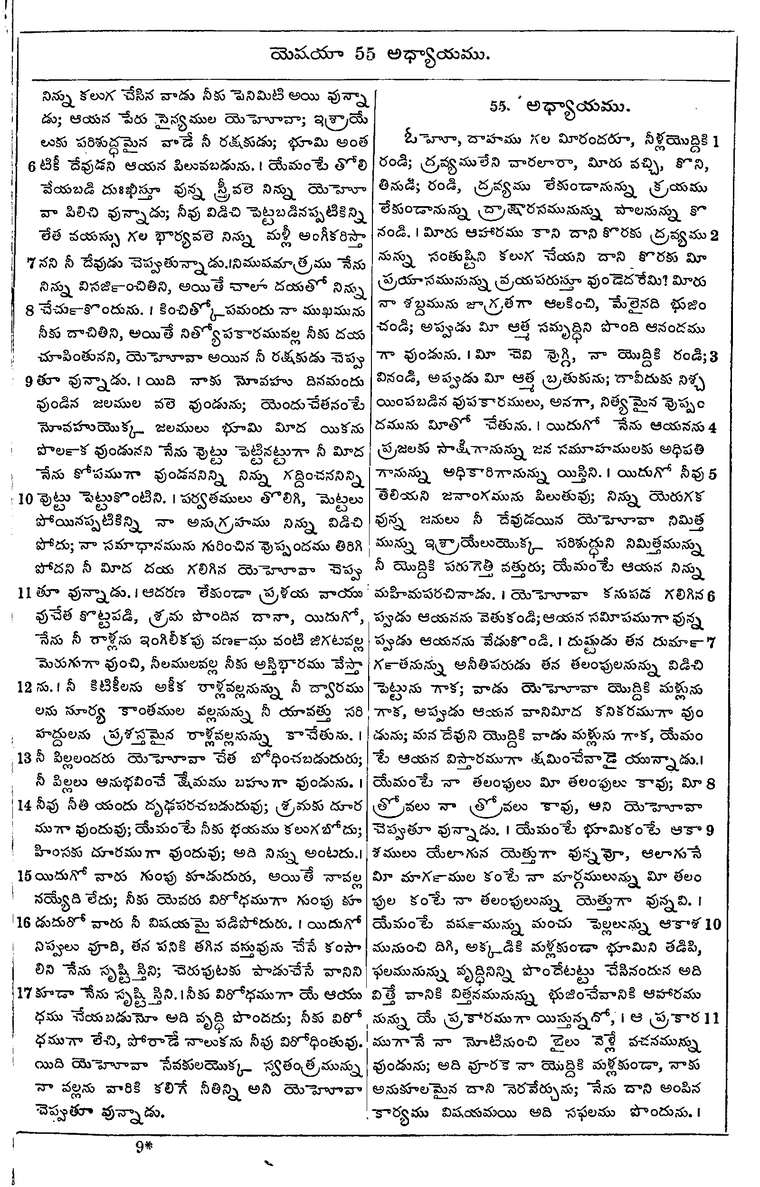 యెషయా 55 అధ్యాయము.
నిన్ను కలుగ చేసిన వాడు నీకు పెనిమిటి అయి వున్నా
డు; ఆయన పేరు సైన్యముల యెహోవా; ఇశ్రాయే
లుకు పరిశుద్ధమైన వాడే నీ రక్షకుడు; భూమి అంత
6 టికీ దేవుడని ఆయన పిలువబడును. । యేమంటే తోలి
వేయబడి దుఃఖిస్తూ వున్న స్త్రీవలె నిన్ను యెహో
వా పిలిచి వున్నాడు; నీవు విడిచి పెట్టబడినప్పటికిన్ని
లేత వయస్సు గల భార్యవలె నిన్ను మళ్లీ అంగీకరిస్తా
7 నని నీ దేవుడు చెప్పుతున్నాడు.।నిముషమాత్రము నేను
నిన్ను విసజి౯ంచితిని, అయితే చాలా దయతో నిన్ను
8 చేచు౯కొందును. । కించిత్కోపమందు నా ముఖమును
నీకు దాచితిని, అయితే నిత్యోపకారమువల్ల నీకు దయ
చూపింతునని, యెహోవా అయిన నీ రక్షకుడు చెప్పు
9 తూ వున్నాడు. । యిది నాకు నోవహు దినమందు
వుండిన జలముల వలె వుండును; యెందుచేతనంటే
నోవహుయొక్క జలములు భూమి మీద యికను
పొల౯క వుండునని నేను వొట్టు పెట్టినట్టుగా నీ మీద
నేను కోపముగా వుండననిన్ని నిన్ను గద్దించననిన్ని
10 వొట్టు పెట్టుకొంటిని. । పర్వతములు తొలిగి, మెట్టలు
పోయినప్పటికిన్ని నా అనుగ్రహము నిన్ను విడిచి
పోదు; నా సమాధానమును గురించిన వొప్పందము తిరిగి
పోదని నీ మీద దయ గలిగిన యెహోవా చెప్పు
11 తూ వున్నాడు. । ఆదరణ లేకుండా ప్రళయ వాయు
వుచేత కొట్టపడి, శ్రమ పొందిన దానా, యిదుగో,
నేను నీ రాళ్లను ఇంగిలీకపు వణ౯ము వంటి జిగటవల్ల
మెరుగుగా వుంచి, నీలములవల్ల నీకు అస్తిభారము వేస్తా
12 ను. । నీ కిటికీలను అకీక రాళ్లవల్లనున్ను నీ ద్వారము
లను సూర్య కాంతముల వల్లనున్ను నీ యావత్తు సరి
హద్దులను ప్రశస్తమైన రాళ్లవల్లనున్ను కాచేతును. ।
13 నీ పిల్లలందరు యెహోవా చేత బోధించబడుదురు;
నీ పిల్లలు అనుభవించే క్షేమము బహుగా వుండును. ।
14 నీవు నీతి యందు దృఢపరచబడుదువు; శ్రమకు దూర
ముగా వుందువు; యేమంటే నీకు భయము కలుగబోదు;
హింసకు దూరముగా వుందువు; అది నిన్ను అంటదు.।
15 యిదుగో వారు గుంపు కూడుదురు, అయితే నావల్ల
నయ్యేది లేదు; నీకు యెవరు విరోధముగా గుంపు కూ
16 డుదురో వారు నీ విషయమై పడిపోదురు. । యిదుగో
నిప్పలు వూది, తన పనికి తగిన వస్తువును చేసే కంసా
లిని నేను సృష్టి స్తిని; చెరుపుటకు పాడుచేసే వానిని
17 కూడా నేను సృష్టి స్తిని.।నీకు విరోధముగా యే ఆయు
ధము చేయబడునో అది వృద్ధి పొందదు; నీకు విరో
ధముగా లేచి, పోరాడే నాలుకను నీవు విరోధింతువు.
యిది యెహోవా సేవకులయొక్క స్వతంత్రమున్ను
నా వల్లను వారికి కలిగే నీతిన్ని అని యెహోవా
చెప్పుతూ వున్నాడు.
55. అధ్యాయము.
ఓహో, దాహము గల మీరందరూ, నీళ్లయొద్దికి 1
రండి; ద్రవ్యములేని వారలారా, మీరు వచ్చి, కొని,
తినుడి; రండి, ద్రవ్యము లేకుండానున్ను క్రయము
లేకుండానున్ను ద్రాక్షారసమునున్ను పాలనున్ను కొ
నండి. । మీరు ఆహారము కాని దాని కొరకు ద్రవ్యము 2
నున్ను సంతుష్టిని కలుగ చేయని దాని కొరకు మీ
ప్రయాసమునున్ను వ్రయపరుస్తూ వుండెదరేమి? మీరు
నా శబ్దమును జాగ్రతగా ఆలకించి, మేలైనది భుజిం
చండి; అప్పుడు మీ ఆత్మ సమృద్ధిని పొంది ఆనందము
గా వుండును. । మీ చెవి వొగ్గి, నా యొద్దికి రండి; 3
వినండి, అప్పుడు మీ ఆత్మ బ్రతుకును; దావీదుకు నిశ్చ
యింపబడిన వుపకారములు, అనగా, నిత్యమైన వొప్పం
దమును మీతో చేతును. । యిదుగో నేను ఆయనను 4
ప్రజలకు సాక్షిగానున్ను జన సమూహములకు అధిపతి
గానున్ను అధికారిగానున్ను యిస్తిని. । యిదుగో నీవు 5
తెలియని జనాంగమును పిలుతువు; నిన్ను యెరుగక
వున్న జనులు నీ దేవుడయిన యెహోవా నిమిత్త
మున్ను ఇశ్రాయేలుయొక్క పరిశుద్ధుని నిమిత్తమున్ను
నీ యొద్దికి పరుగెత్తి వత్తురు; యేమంటే ఆయన నిన్ను
మహిమపరచినాడు. । యెహోవా కనుపడ గలిగిన 6
ప్పుడు ఆయనను వెతుకండి; ఆయన సమీపముగా వున్న
ప్పుడు ఆయనను వేడుకొండి. । దుష్టుడు తన దుమా౯ 7
గ౯తనున్ను అనీతిపరుడు తన తలంఫులనున్ను విడిచి
పెట్టును గాక; వాడు యెహోవా యొద్దికి మళ్లును
గాక, అప్పుడు ఆయన వానిమీద కనికరముగా వుం
డును; మన దేవుని యొద్దికి వాడు మళ్లును గాక, యేమం
టే ఆయన విస్తారముగా క్షమించేవాడై యున్నాడు.।
యేమంటే నా తలంఫులు మీ తలంఫులు కావు; మీ 8
త్రోవలు నా త్రోవలు కావు, అని యెహోవా
చెప్పుతూ వున్నాడు. । యేమంటే భూమికంటే ఆకా 9
శములు యేలాగున యెత్తుగా వున్నవో, ఆలాగునే
మీ మాగ౯ముల కంటే నా మార్గములున్ను మీ తలం
ఫుల కంటే నా తలంఫులున్ను యెత్తుగా వున్నవి. ।
యేమంటే వష౯మున్ను మంచు పెల్లలున్ను ఆకాశ 10
మునుంచి దిగి, అక్కడికి మళ్లకుండా భూమిని తడిపి,
ఫలమునున్ను వృద్ధినిన్ని పొందేటట్టు చేసినందున అది
విత్తే వానికి విత్తనమునున్ను భుజించేవానికి ఆహారము
నున్ను యే ప్రకారముగా యిస్తున్నదో, । ఆ ప్రకార 11
ముగానే నా నోటినుంచి బైలు వెళ్లే వచనమున్ను
వుండును; అది వూరకె నా యొద్దికి మళ్లకుండా, నాకు
అనుకూలమైన దాని నెరవేర్చును; నేను దాని అంపిన
కార్యము విషయమయి అది సఫలము పొందును. ।
9*